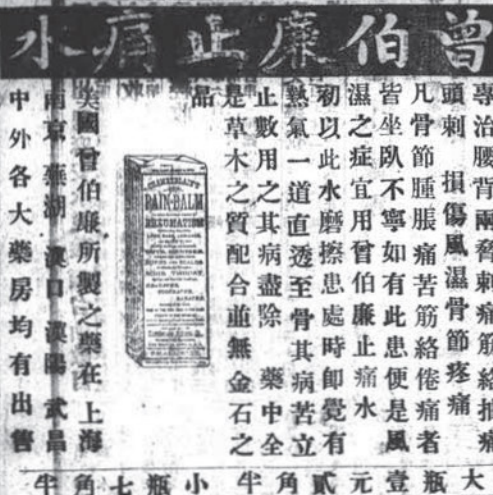 曾伯廉止痛水
專治腰背兩脅刺痛筋絡抽痛
頭刺 損傷風濕骨節疼痛
凡骨節腫脹痛苦筋絡倦痛者
皆坐臥不寧如有此患便是風
濕之症宜用曾伯廉止痛水
初以此水磨擦患處時即覺有
熱氣一道直透至骨其病苦立
止數用之其病盡除 藥中全
是草木之質配合並無金石之
品
CHAMBERLAIN'S
PAIN-BALM
RHEUMATISM
美國曾伯廉所製之藥在上海
南京 蕪湖 漢口 漢陽 武昌
中外各大藥房均有出售
大瓶壹元貳角半 小瓶七角半